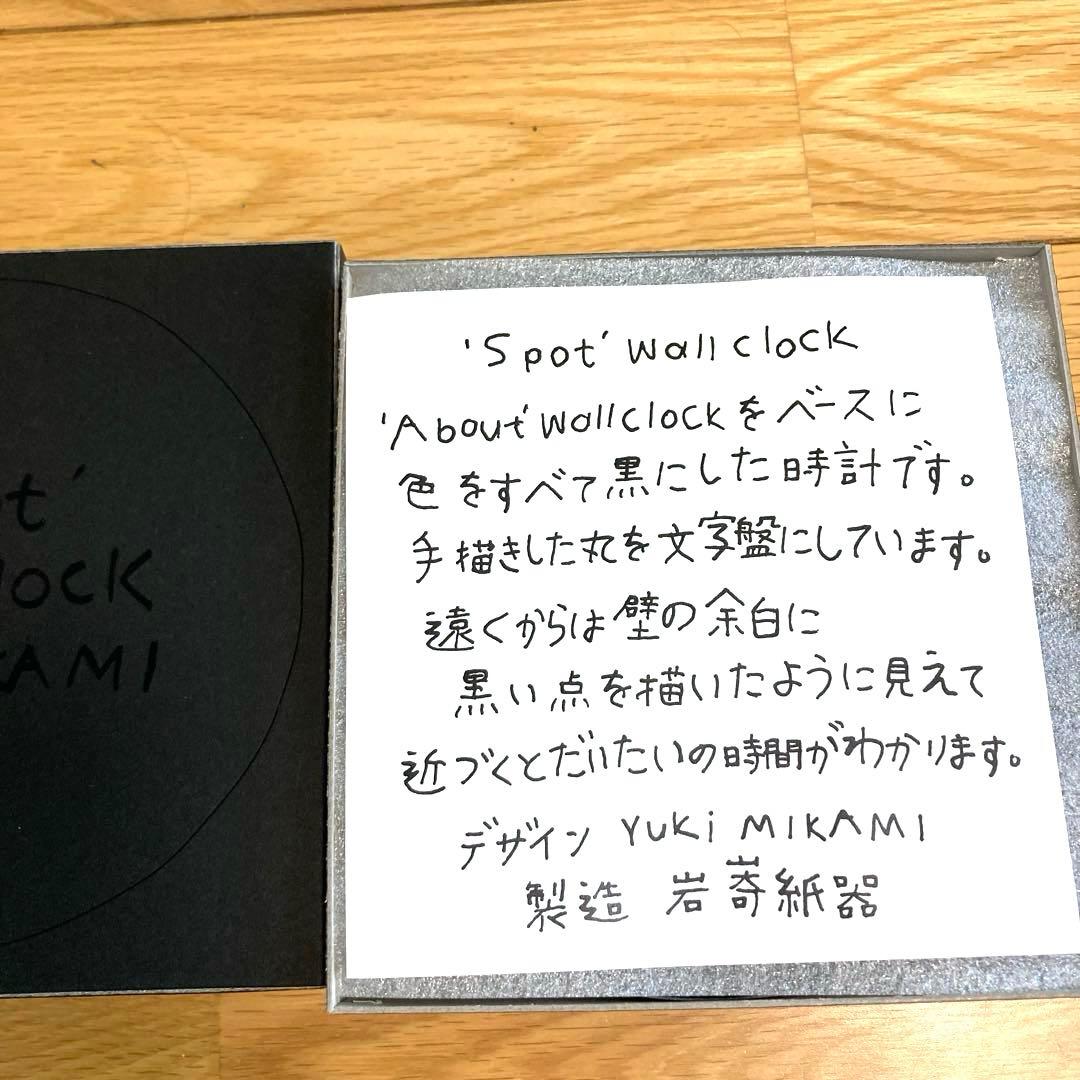 ot'
lock
KAMI
'Spot' wall clock
'About' wall clockをベースに
色をすべて黒にした時計です。
手描きした丸を文字盤にしています。
遠くからは壁の余白に
黒い点を描いたように見えて
近づくとだいたいの時間がわかります。
デザイン YUKi MIKAMI
製造 岩嵜紙器